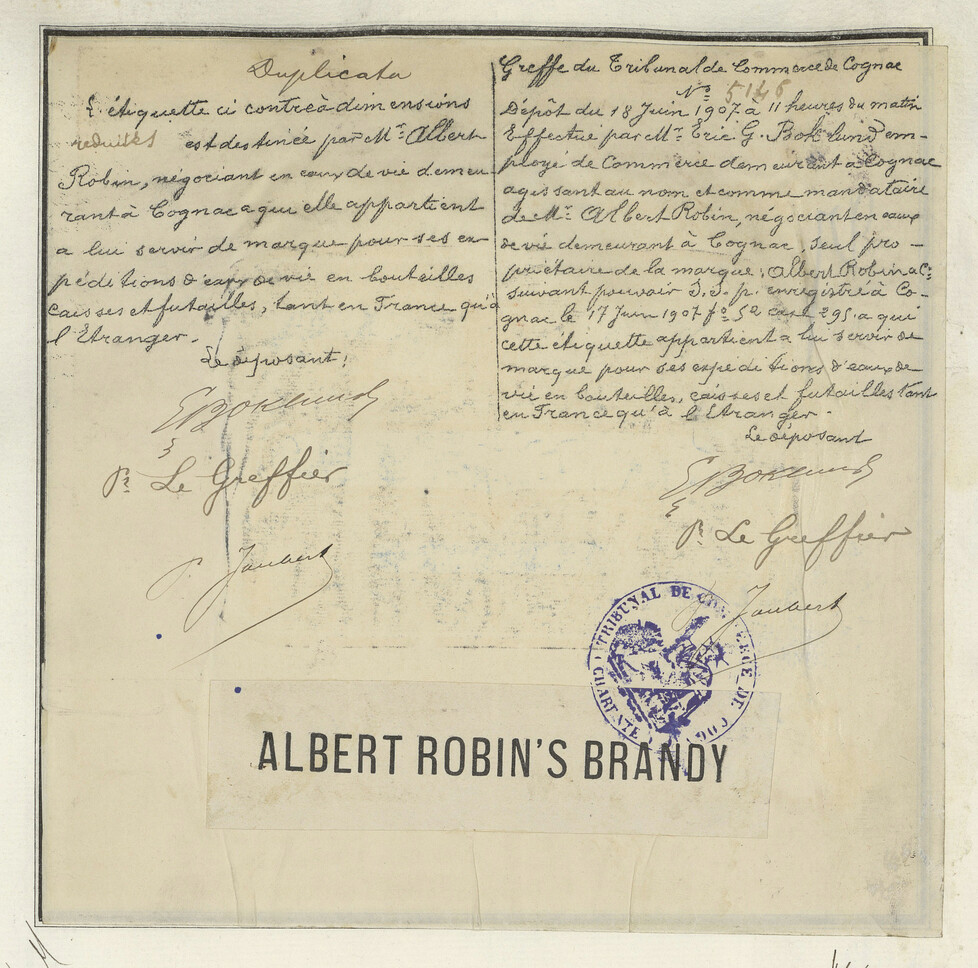 Duplicata
L'étiquette ci contre à dimensions
reduites est destinée par Mr. Albert
Robin, négociant en eaux de vie demeu
rant à Cognac a qui elle appartient
a lui servir de marque pour ses ex
péditions d'eaux de vie en bouteilles
caisses et futailles, tant en France qu'à
l'Etranger.
Le déposant:
EBoklund
Pr Le Greffier
P. Joubert
Greffe du Tribunal de Commerce de Cognac
No 5146
Dépôt du 18 Juin 1907 à 11 heures du matin
Effectue par Mr. Eric G. Boklund em-
ployé de Commerce demeurant à Cognac
agissant au nom et comme mandataire
de Mr. Albert Robin, négociant en eaux
de vie demeurant à Cognac, seul pro-
priétaire de la marque: Albert Robin & Cie
suivant pouvoir S.S.p. enregistré à Co-
gnac le 17 Juin 1907 fo 52 case 295 a qui
cette étiquette appartient a lui servir de
marque pour ses expeditions d'eaux de
vie en bouteilles, caisses et futailles tant
en France qu'à l'Etranger.
Le déposant
EBoklund
Pr Le Greffier
Joubert
TRIBUNAL DE COMMERCE DE COGNAC
CHARENTE
ALBERT ROBIN'S BRANDY